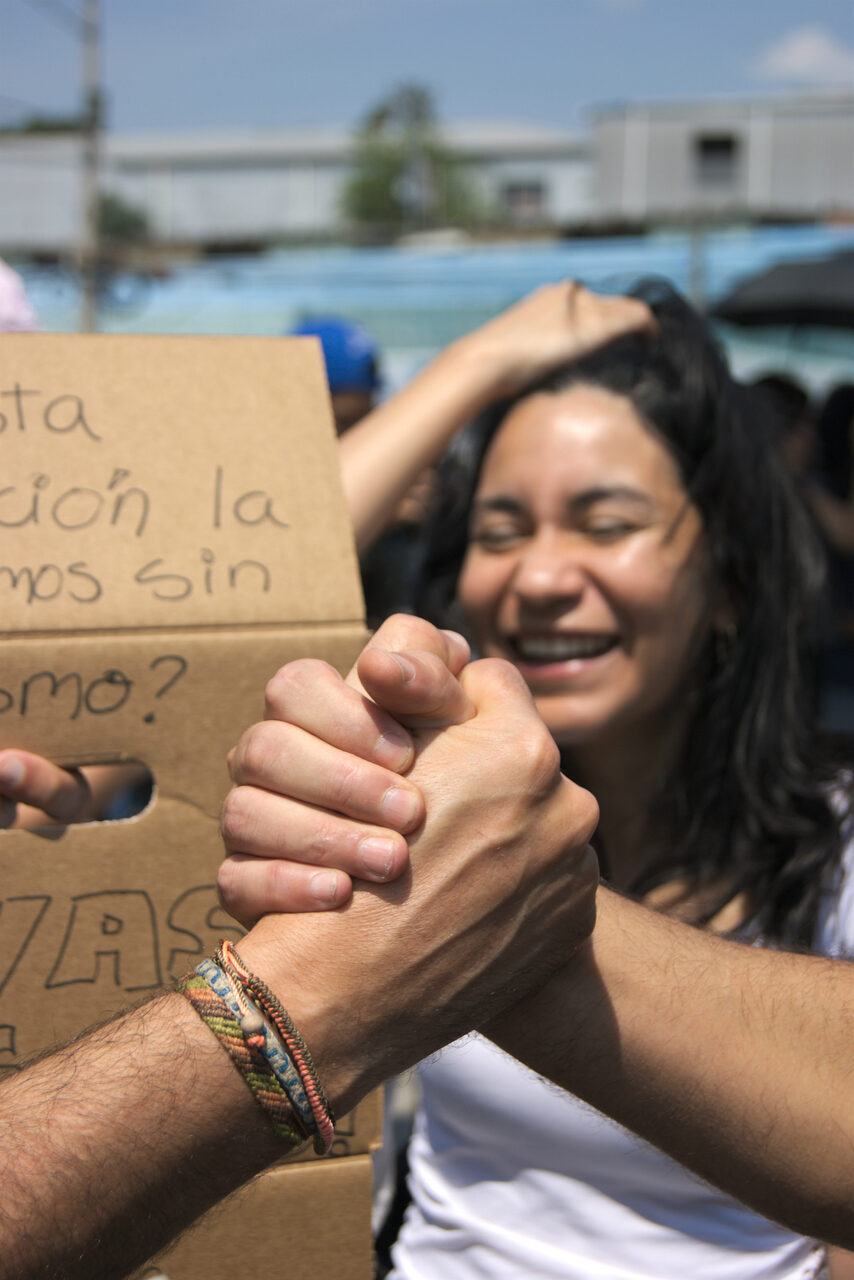 sta
ción la
mos sin
smo?
VAS